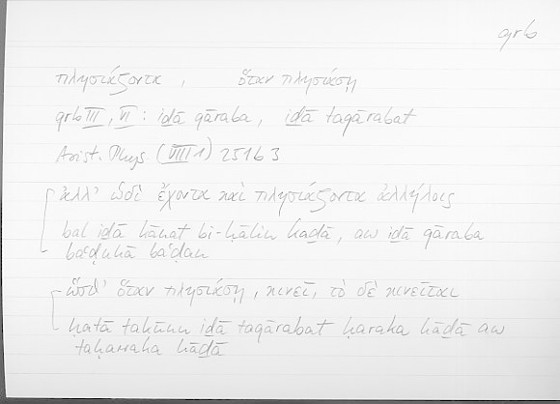 qrb
πλησιάζοντα , ὅταν πλησιάσῃ
qrb III, VI : iḏā qāraba, iḏā taqārabat
Arist. Phys (VIII 1) 251 b 3
ἀλλ' ὡδὶ ἔχοντα καὶ πλησιάζοντα ἀλλήλοις
bal iḏā kānat bi-ḥālin kaḏā, aw iḏā qāraba
baʿḍuhā baʿḍan
ὥσθ' ὅταν πλησιάσῃ, κινεῖ, τὸ δὲ κινεῖται
ḥattā takūnu iḏā taqārabat ḥaraka hāḏā aw
taḥarraka hāḏā